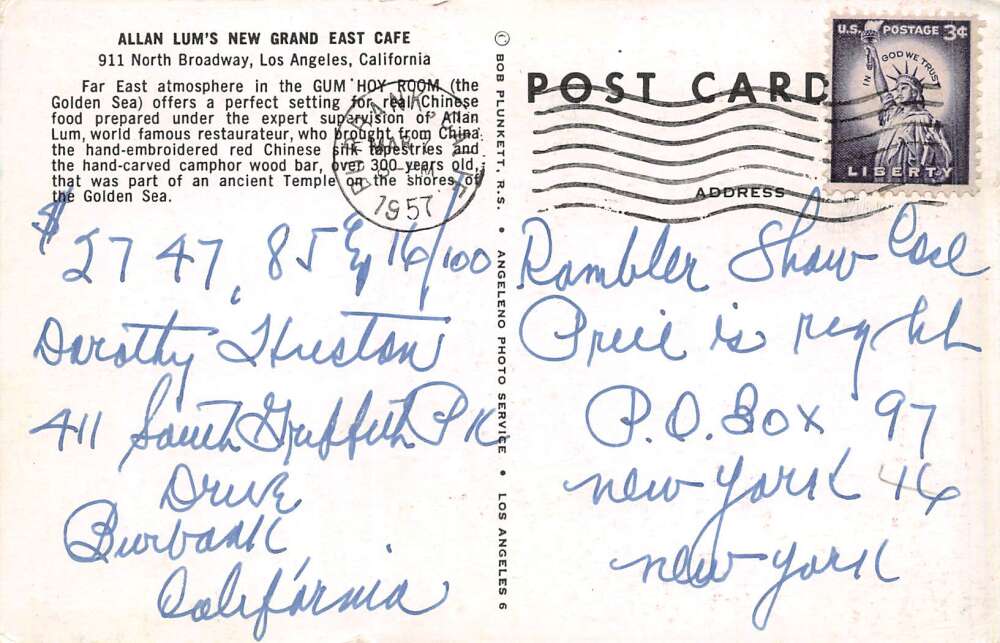 ALLAN LUM'S NEW GRAND EAST CAFE
911 North Broadway, Los Angeles, California
Far East atmosphere in the GUM HOY ROOM (the
Golden Sea) offers a perfect setting for real Chinese
food prepared under the expert supervision of Allan
Lum, world famous restaurateur, who brought from China
the hand-embroidered red Chinese silk tapestries and
the hand-carved camphor wood bar, over 300 years old,
that was part of an ancient Temple on the shores of
the Golden Sea.
$2747.85 & 16/100
Dorothy Huston
411 South Griffith PK
Drive
Burbank
California
© BOB PLUNKETT, R.S. • ANGELENO PHOTO SERVICE • LOS ANGELES 6
POST CARD
ADDRESS
BURBANK
MAR
1957
U.S. POSTAGE 3¢
IN GOD WE TRUST
LIBERTY
Rambler Show Case
Price is right
P.O. Box 97
new York 46
new York